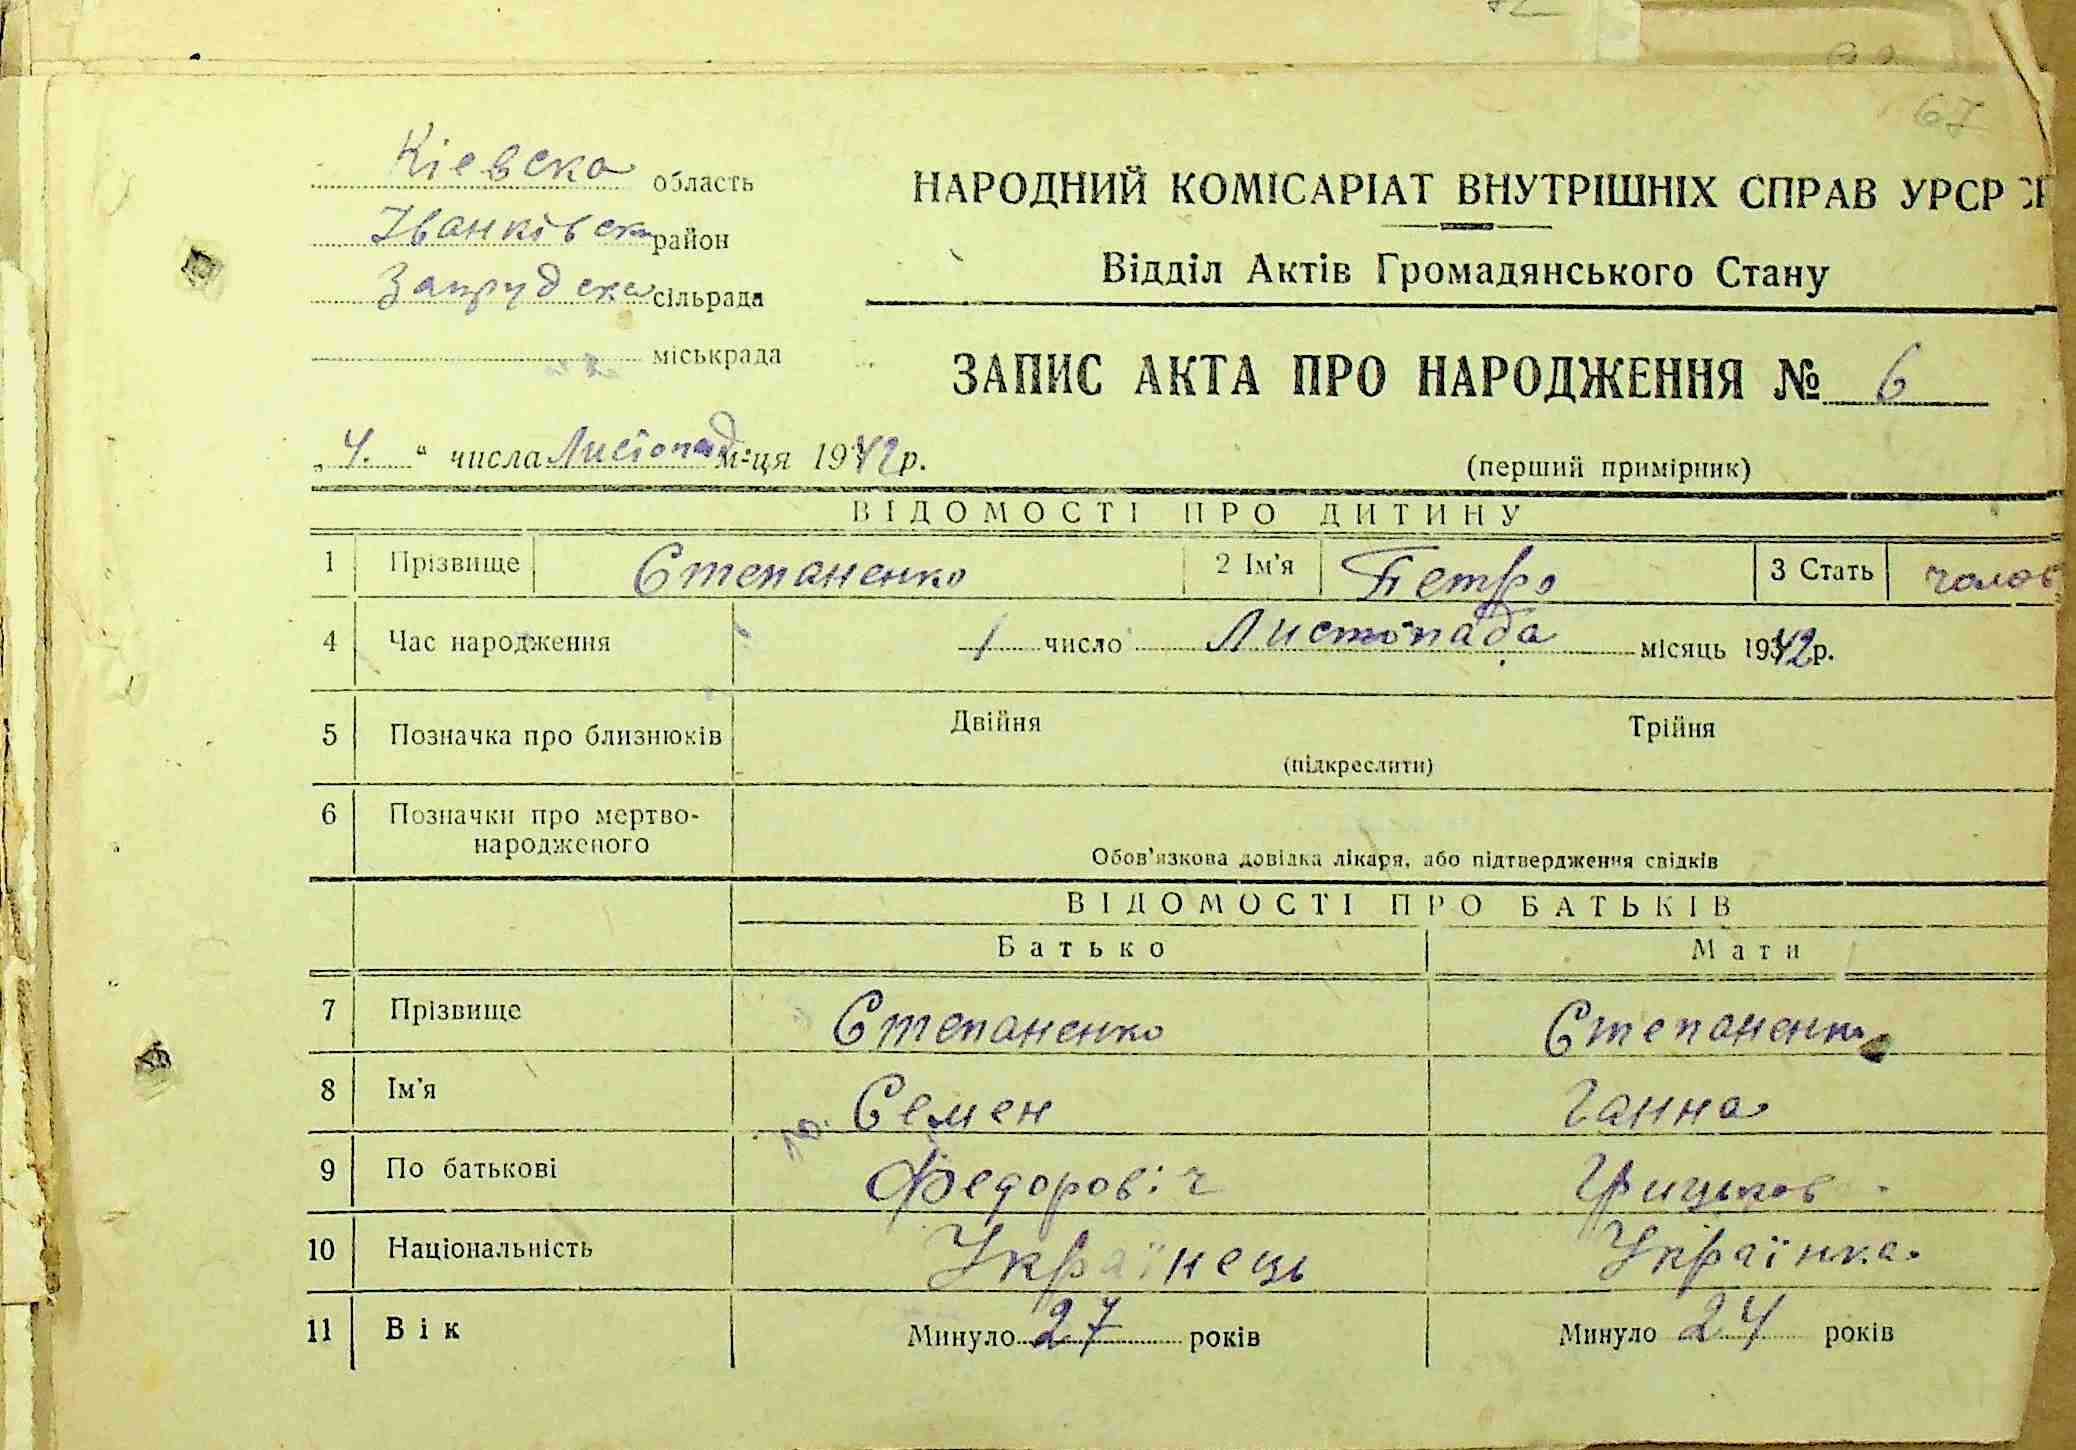 67
Кіевска область
Іванківськ район
Запрудска сільрада
міськрада
НАРОДНИЙ КОМІСАРІАТ ВНУТРІШНІХ СПРАВ УРСР
Відділ Актів Громадянського Стану
ЗАПИС АКТА ПРО НАРОДЖЕННЯ № 6
„4.“ числа Листопад м-ця 1942 р.
(перший примірник)
ВІДОМОСТІ ПРО ДИТИНУ
1 Прізвище Степаненко 2 Ім'я Петро 3 Стать чолов
4 Час народження 1 число Листопада місяць 1942 р.
5 Позначка про близнюків Двійня Трійня
(підкреслити)
6 Позначки про мертво-
народженого
Обов'язкова довідка лікаря, або підтвердження свідків
ВІДОМОСТІ ПРО БАТЬКІВ
Батько Мати
7 Прізвище Степаненко Степаненко
8 Ім'я Семен Ганна
9 По батькові Федоровіч Грицьков
10 Національність Українець Українка
11 Вік Минуло 27 років Минуло 24 років